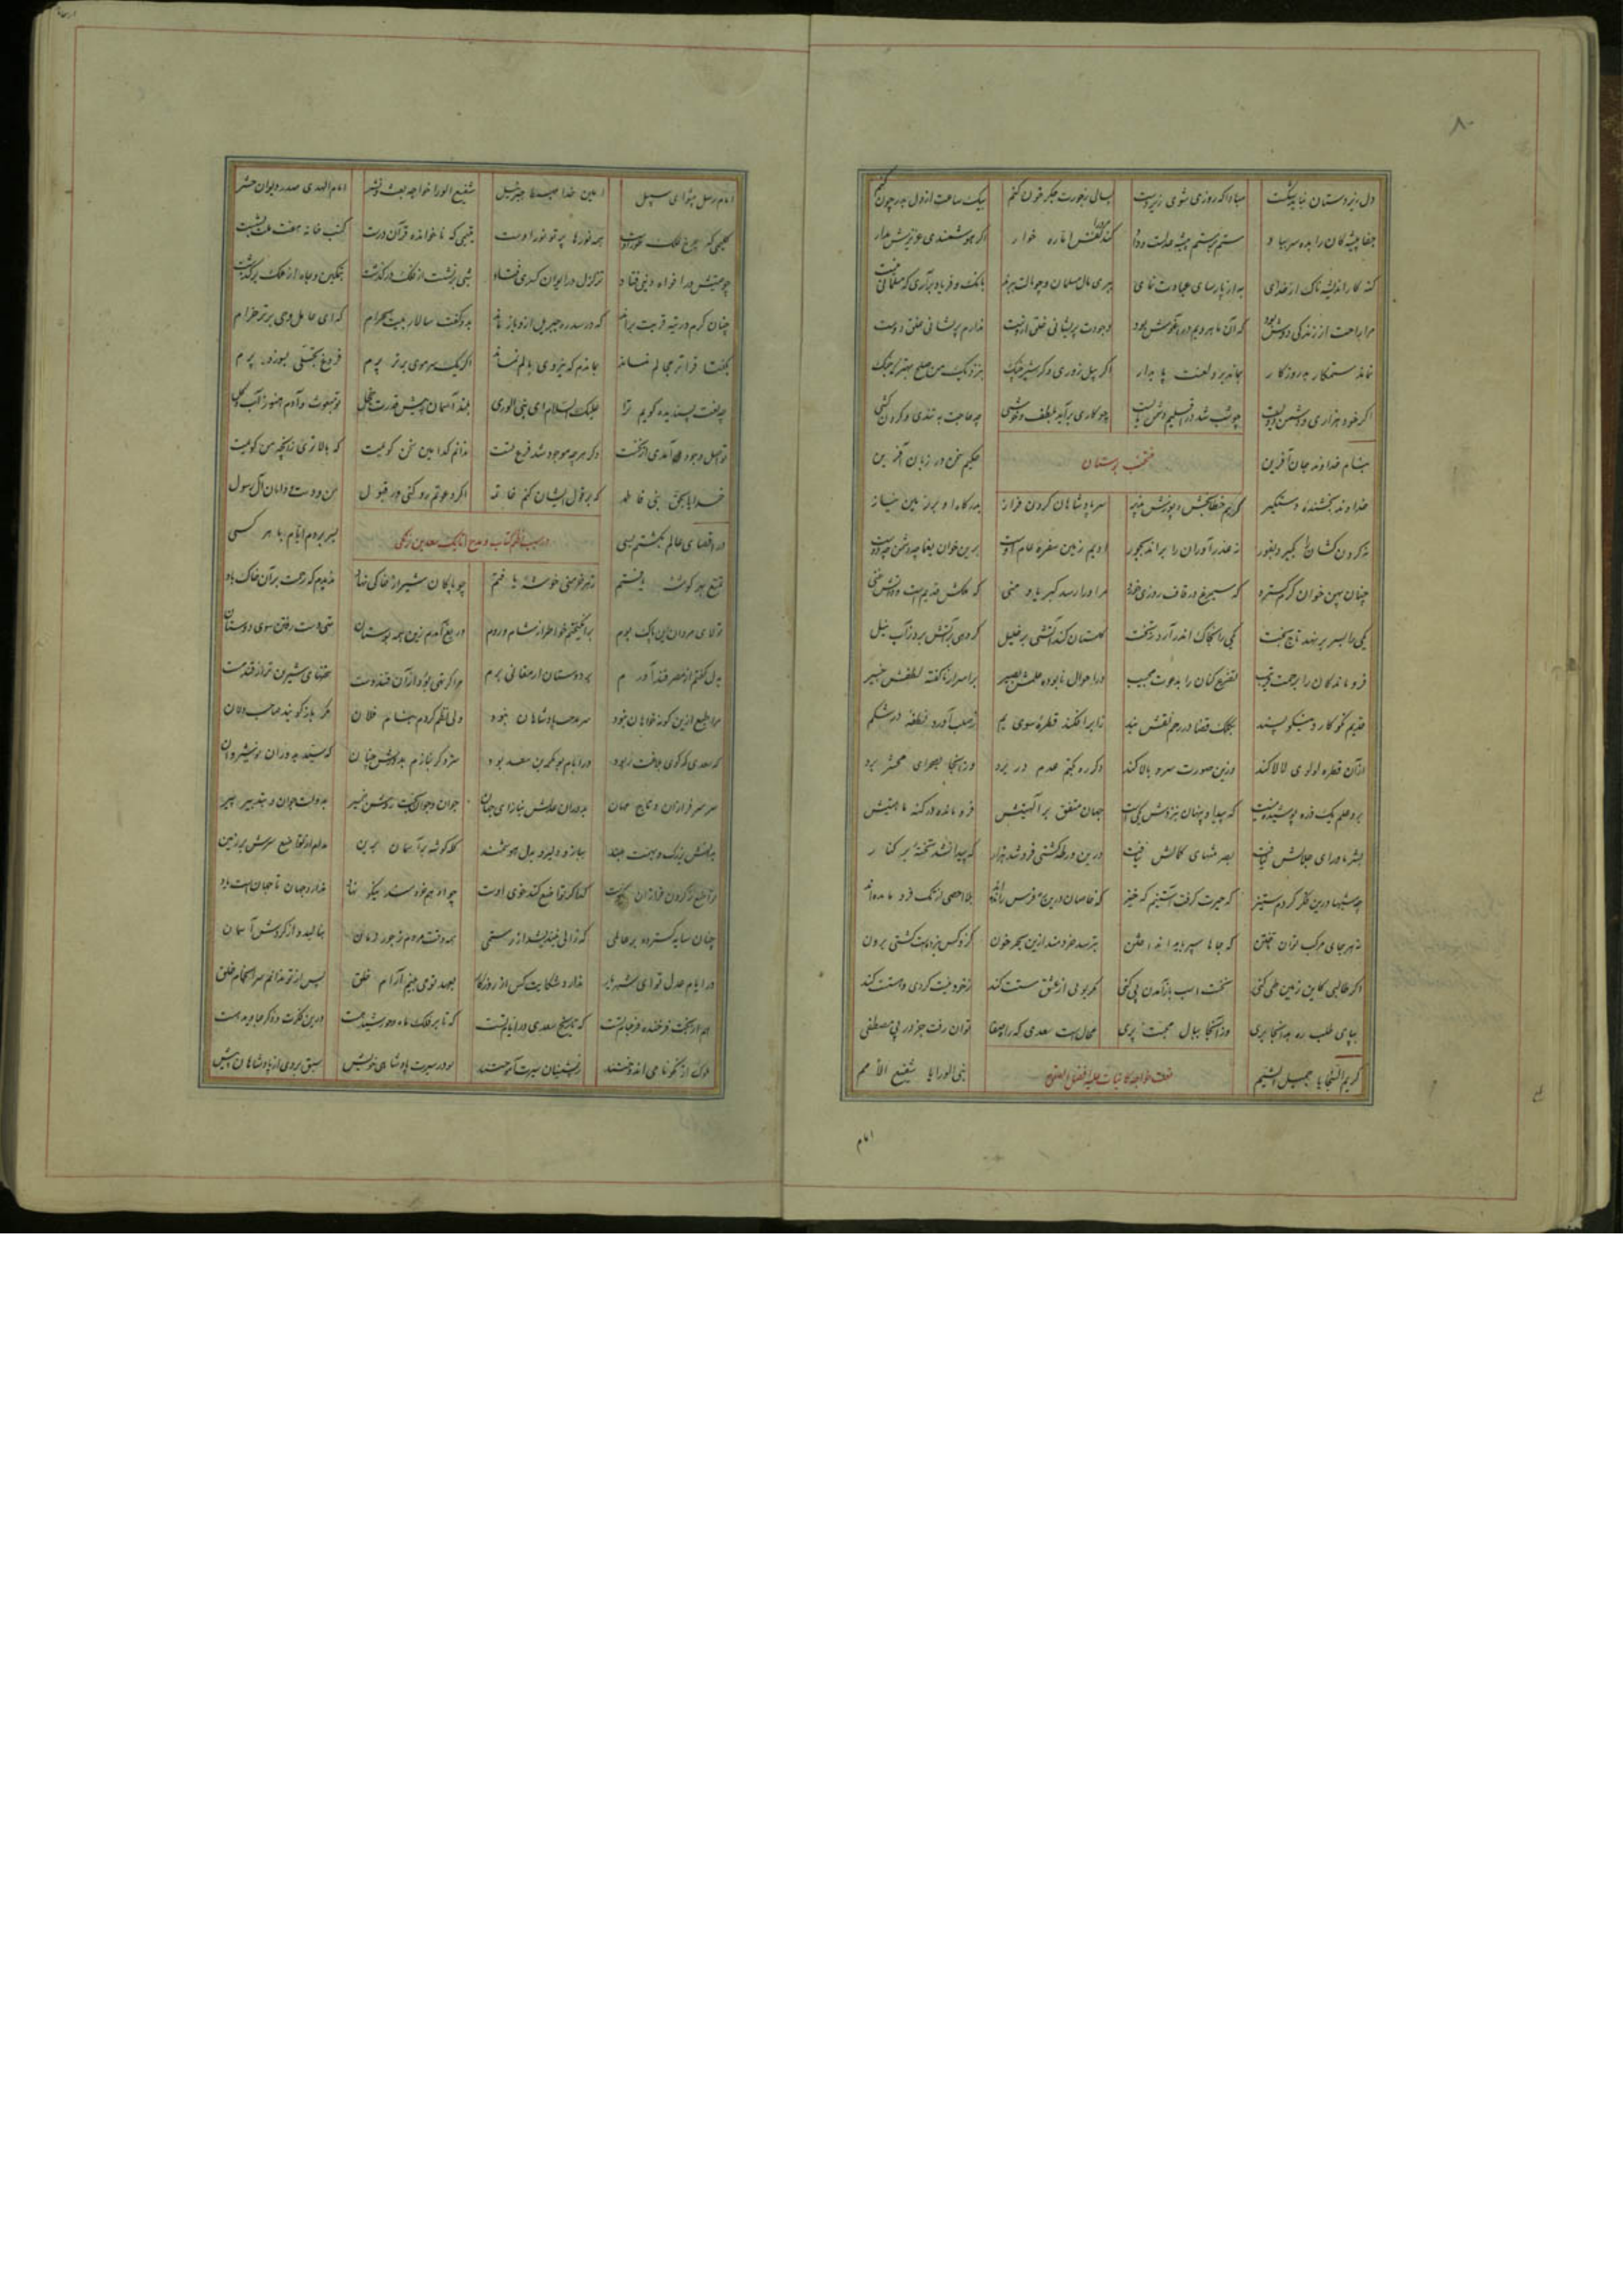 دل زیردستان نباید شکست مبادا که روزی شوی زیردست بسالی زجورت جگر خون کنم بیک ساعت از دل بدر چون کنم
جفا پیشه کان را بده سر بباد ستم بر ستم پیشه عدلست و داد کند نفس اماره خوار اگر هوشمندی عزیزش مدار
گنه کار اندیشه ناک از خدای به از پارسای عبادت نمای بری مال مسلمان و چو مالت ببرند بانک و فریاد برآری که مسلمانی نیست
مرا راحت از زندگی دوش بود که آن ماهرویم در آغوش بود وجودت پریشانی خلق ازوست ندارم پریشانی خلق دوست
نماند ستمکار بد روزکار بماند برو لعنت پایدار اگر پیل زوری و کر شیر چنک بنزدیک من صلح بهتر که جنک
چو کاری برآید بلطف و خوشی چه حاجت به تندی و کردن کشی
منتخب بوستان
بنام خداوند جان آفرین حکیم سخن در زبان آفرین
خداوند بخشنده دستکیر کریم خطا بخش و پوزش پذیر سر پادشاهان کردن فراز بدرکاه او بر زمین نیاز
نه کردن کشان را بگیرد بفور نه عذر آوران را براند بجور ادیم زمین سفره عام اوست برین خوان یغما چه دشمن چه دوست
چنان پهن خوان کرم کسترد که سیمرغ در قاف روزی خورد مر او را رسد کبریا و منی که ملکش قدیم است و ذاتش غنی
یکی را بسر بر نهد تاج بخت یکی را بخاک اندر آرد ز تخت کلستان کند آتشی بر خلیل کروهی بر آتش برد ز آب نیل
فرو ماندکان را برحمت قریب تضرع کنان را بدعوت مجیب در احوال نابوده علمش بصیر بر اسرار ناکفته لطفش خبیر
قدیم نکو کار نیکو پسند بکلک قضا در رحم نقش بند ز ابر افکند قطره سوی یم ز صلب آورد نطفه در شکم
از آن قطره لولوی لالا کند وزین صورت سرو بالا کند دکر ره بکتم عدم در برد وز آنجا بصحرای محشر برد
برو علم یک ذره پوشیده نیست که پیدا و پنهان بنزدش یکی است جهان متفق بر الهیتش فرو مانده در کنه ماهیتش
بشر ماورای جلالش نیافت بصر منتهای کمالش نیافت درین ورطه کشتی فرو شد هزار که پیدا نشد تخته بر کنار
چه شبها درین فکر کردم ستیز که حیرت کرفت آستینم که خیز که خاصان درین ره فرس رانده‌اند بلا احصی از تک فرو مانده‌اند
نه هر جای مرکب توان تاختن که جاها سپر باید انداختن بترسد خردمند ازین بحر خون کزو کس نبردست کشتی برون
اگر طالبی کاین زمین طی کنی نخست اسب باز آمدن پی کنی مکر بوئی از عشق مستت کند
بپای طلب ره بدانجا بری وز آنجا ببال محبت پری محال است سعدی که راه صفا توان رفت جز در پی مصطفی
کریم السجایا جمیل الشیم نبی الورایا شفیع الامم
امام
امام رسل پیشوای سبیل امین خدا مهبط جبرئیل شفیع الورا خواجه بعث و نشر امام الهدی صدر دیوان حشر
کلیمی که چرخ فلک طور اوست همه نورها پرتو نور اوست یتیمی که ناخوانده قرآن درست کتب خانه هفت ملت بشست
چو صیتش در افواه دنیی فتاد تزلزل در ایوان کسری فتاد شبی برنشست از فلک در کذشت بتمکین و جاه از ملک بر کذشت
چنان کرم در تیه قربت براند که در سدره جبریل ازو باز ماند بدو کفت سالار بیت الحرام که ای حامل وحی برتر خرام
بکفتا فراتر مجالم نماند بماندم که نیروی بالم نماند اکر یک سر موی برتر پرم فروغ تجلی بسوزد پرم
چه نعت پسندیده کویم ترا علیک السلام ای نبی الوری بلند آسمان پیش قدرت خجل تو مبعوث و آدم هنوز آب و کل
تو اصل وجود آمدی از نخست دکر هر چه موجود شد فرع تست ندانم کدامین سخن کویمت که بالاتری زآنچه من کویمت
خدایا بحق بنی فاطمه که بر قول ایشان کنم خاتمه اکر دعوتم رد کنی ور قبول من و دست و دامان آل رسول
در سبب نظم کتاب و مدح اتابک سعد بن زنگی
در اقصای عالم بکشتم بسی بسر بردم ایام با هر کسی
تمتع بهر کوشه یافتم ز هر خرمنی خوشه یافتم چو پاکان شیراز خاکی نهاد ندیدم که رحمت بر آن خاک باد
تولای مردان این پاک بوم برانگیختم خاطر از شام و روم دریغ آمدم زین همه بوستان تهی دست رفتن سوی دوستان
بدل کفتم از مصر قند آورم بر دوستان ارمغانی برم مرا کر تهی بود از آن قند دست سخنهای شیرین تر از قند هست
مرا طبع ازین کونه خواهان نبود سر مدحت پادشاهان نبود ولی نظم کردم بنام فلان مکر باز کویند صاحب دلان
که سعدی که کوی بلاغت ربود در ایام بوبکر بن سعد بود سزد کر بنازم بدورش چنان که سید بدوران نوشیروان
سر سرفرازان و تاج مهان بدوران عدلش بناز ای جهان جوان و جوان بخت روشن ضمیر بدولت جوان و بتدبیر پیر
بدانش بزرک و بهمت بلند ببازو دلیر و بدل هوشمند
چنان سایه کسترده بر عالمی که زالی نیندیشد از رستمی همه وقت مردم ز جور زمان بنالند و از کردش آسمان
در ایام عدل تو ای شهریار ندارد شکایت کس از روزکار بعهد تو می بینم آرام خلق پس از تو ندانم سرانجام خلق
هم از بخت فرخنده فرجام تست که تاریخ سعدی در ایام تست که تا بر فلک ماه و خورشید هست درین دفترت ذکر جاوید هست
ملوک ار نکو نامی اندوختند ز پیشینیان سیرت آموختند تو در سیرت پادشاهی خویش سبق بردی از پادشاهان پیش